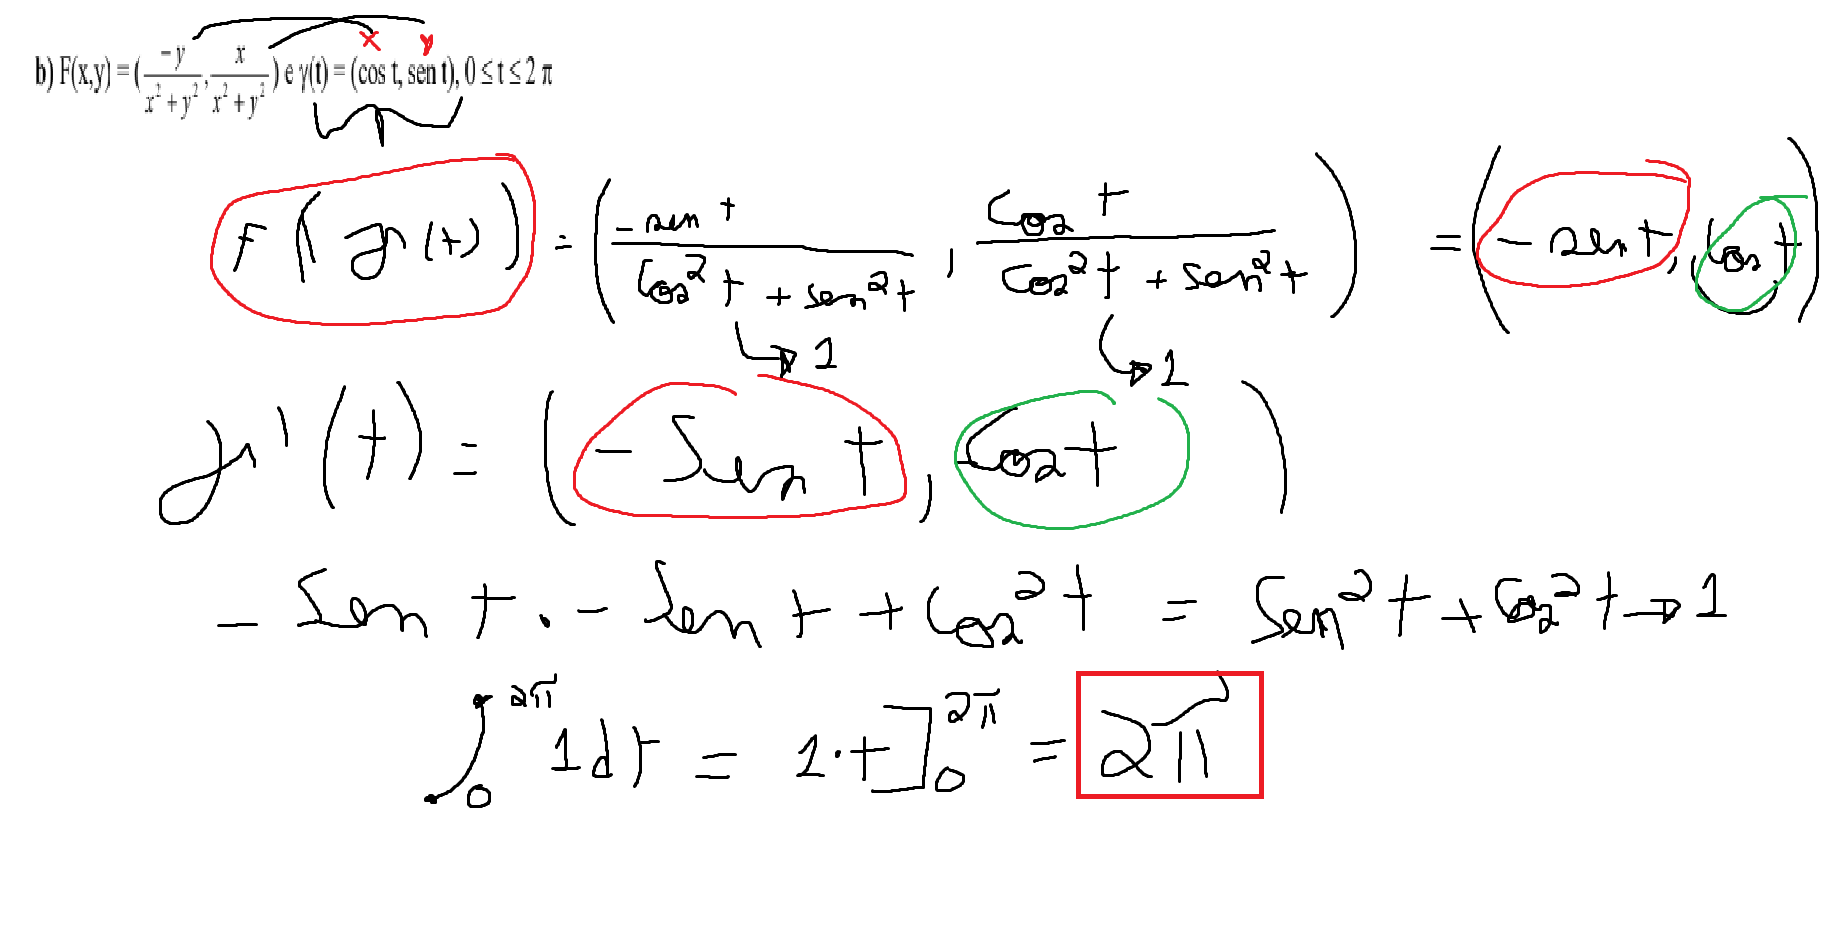 x y
b) F(x,y) = ( -y / x² + y² , x / x² + y² ) e γ(t) = (cos t, sen t), 0 ≤ t ≤ 2 π
F ( γ (t) ) = ( - sen t / Cos² t + sen² t , Cos t / Cos² t + sen² t ) = ( - sen t, Cos t )
1 1
γ' (t) = ( - Sen t , Cos t )
- Sen t . - Sen t + Cos² t = Sen² t + Cos² t → 1
∫₀^2π 1 dt = 1 · t ]₀^2π = 2π